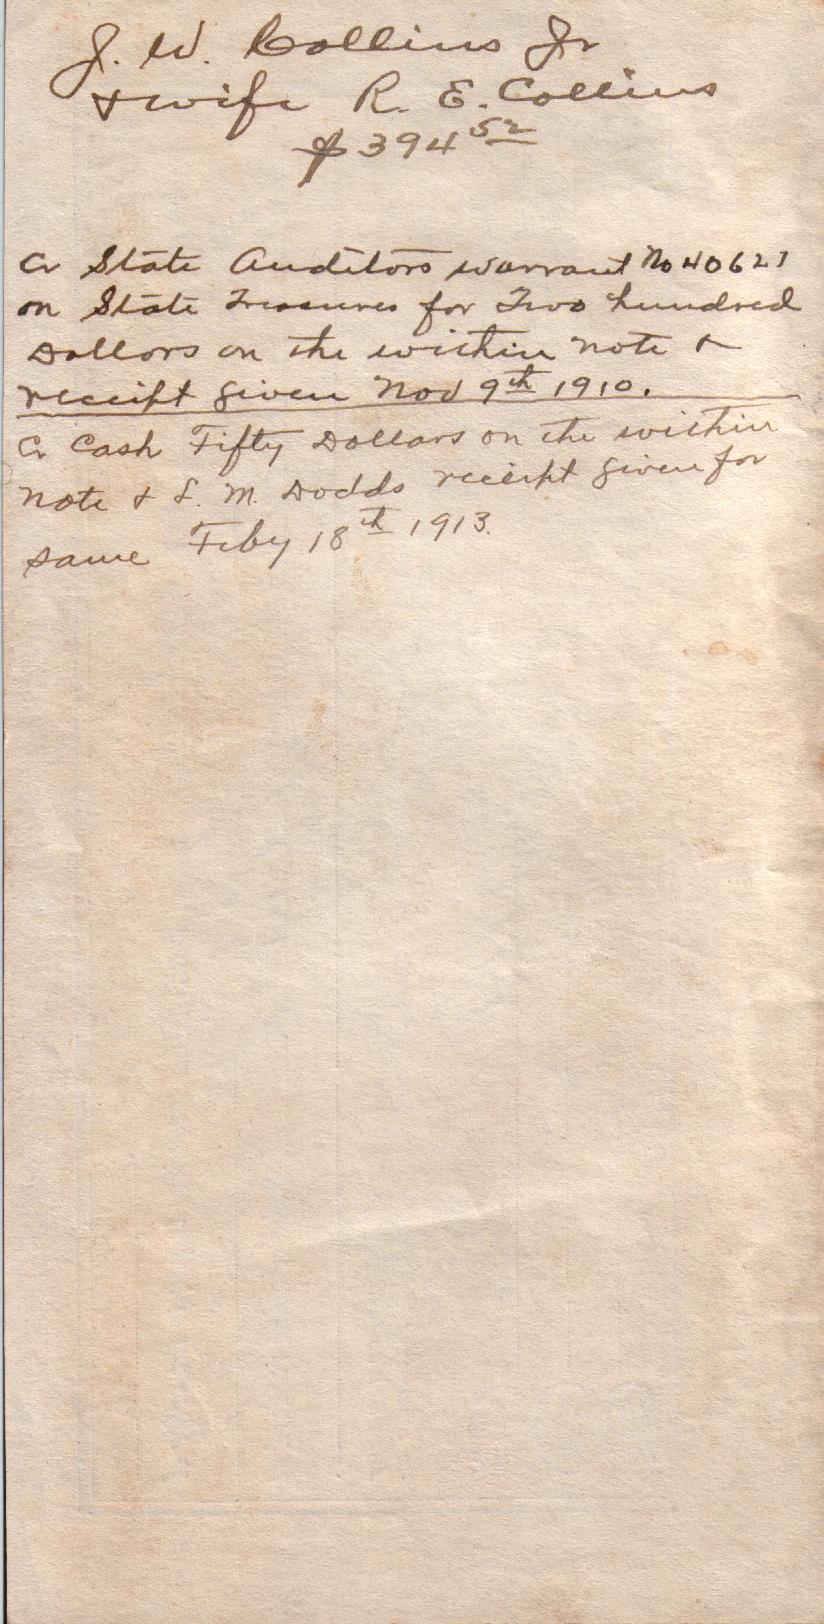 J. W. Collins Jr
& wife R. E. Collins
$394 52
Cr State Auditors warrant No 40627
on State Treasures for Two hundred
Dollars on the within note &
receipt given Nov 9th 1910.
Cr Cash Fifty Dollars on the within
note & S. M. Dodds receipt given for
same Feby 18th 1913.